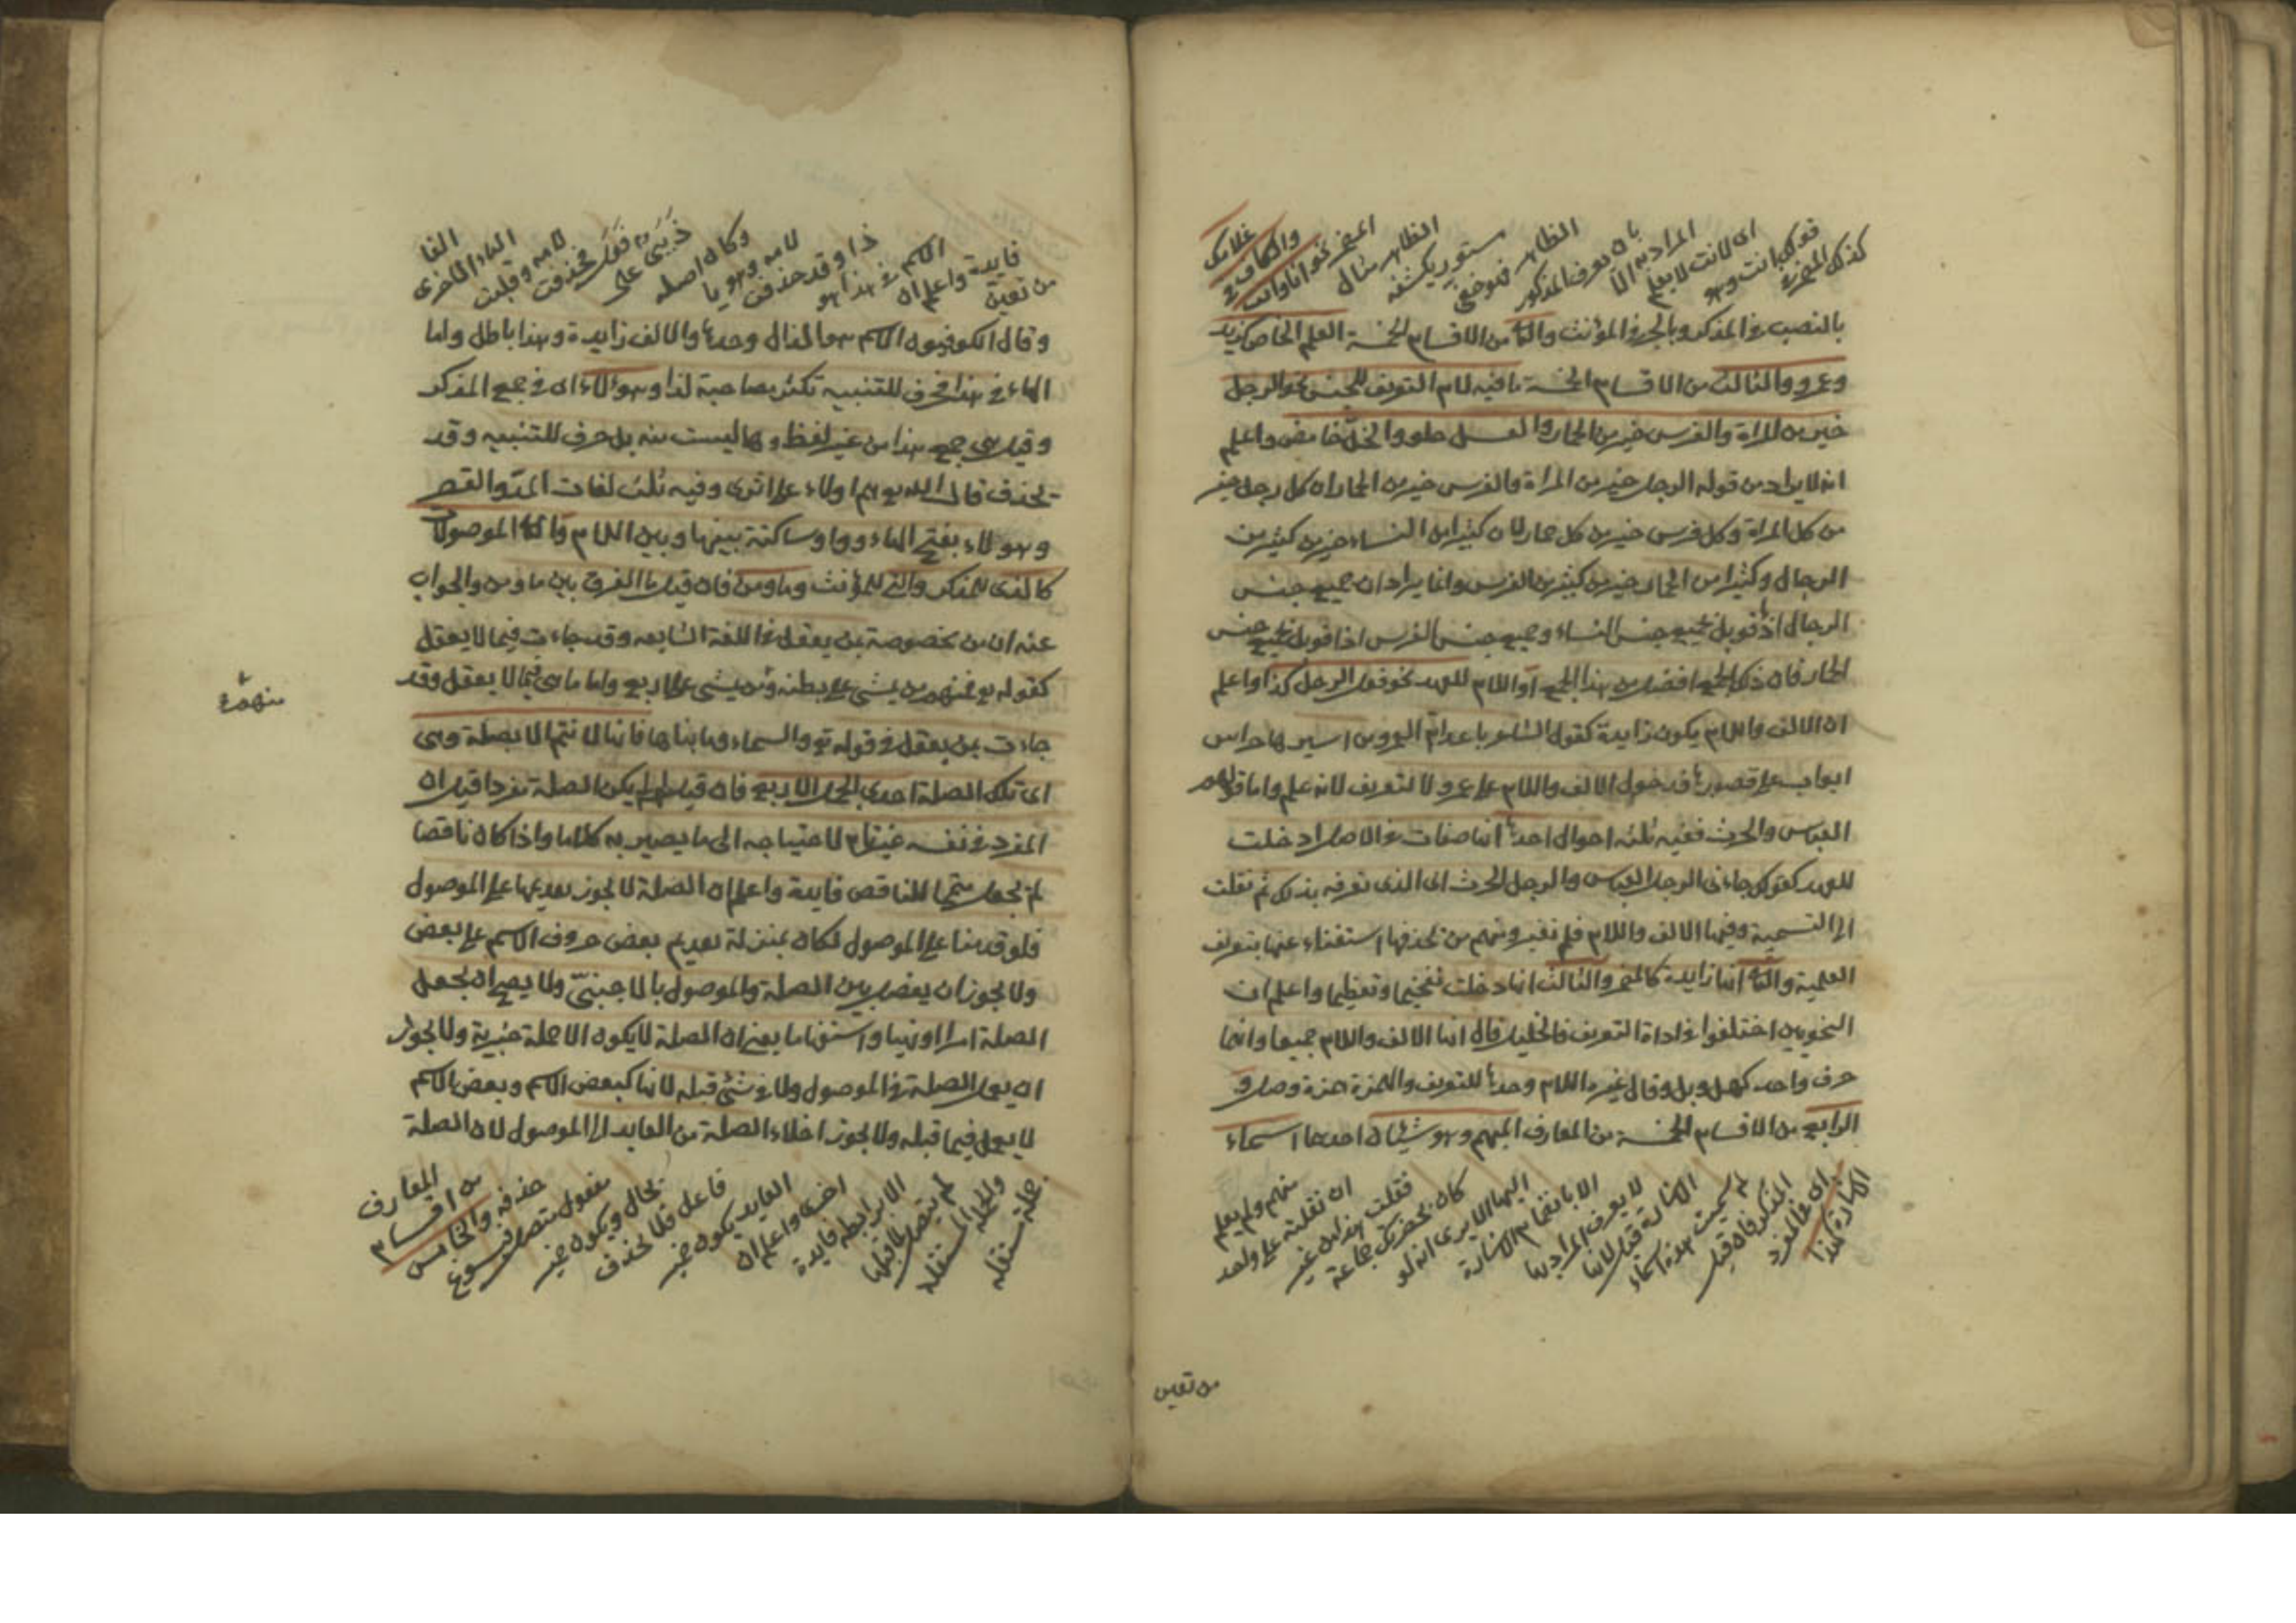 كذلك المضمر في
قولك انت وهو
اى الانت لا يعلم
المراد به الا
بان يعرف المذكور
الظاهر فهو خفى
مستور يكشفه
الظاهر مثال
المضمر نحو انا وانت
والكاف فى
غلامك
بالنصب فى المذكر وبالجر فى المؤنث والثانى من الاقسام الخمسة العلم الخاص كزيد
وعمرو والثالث من الاقسام الخمسة ما فيه لام التعريف للجنس نحو الرجل
خير من المراة والفرس خير من الحمار والعسل حلو والخل حامض واعلم
انه لا يراد من قوله الرجل خير من المراة والفرس خير من الحمار ان كل رجل خير
من كل امراة وكل فرس خير من كل حمار لان كثيرا من النساء خير من كثير من
الرجال وكثيرا من الحمار خير من كثير من الفرس وانما يراد ان جميع جنس
الرجال اذا قوبل بجميع جنس النساء وجميع جنس الفرس اذا قوبل بجميع جنس
الحمار فان ذلك الجمع افضل من هذا الجمع او اللام للعهد نحو فعل الرجل كذا واعلم
ان الالف واللام يكون زايدة كقول الشاعر باعد ام العمرو من اسيرها حراس
ابواب على قصورها فدخول الالف واللام على عمرو لا لتعريف لانه علم واما قولهم
العباس والحرث ففيه ثلثه احوال احدها انها صفات فى الاصل دخلت
للعهد كقولك جاءنى الرجل العباس والرجل الحرث اى الذى تعرفه بذلك ثم نقلت
الى التسمية وفيها الالف واللام فلم تغير ومنهم من يحذفها استغناء عنها بتعريف
العلمية والثانى انها زايدة كالعمرو والثالث انها دخلت تفخيما وتعظيما واعلم ان
النحويين اختلفوا فى اداة التعريف فالخليل قال انها الالف واللام جميعا وانها
حرف واحد كهل وبل وقال غيره اللام وحدها للتعريف والهمزة همزة وصل و
الرابع من الاقسام الخمسة من المعارف المبهم وهو شيئان احدهما اسماء
الاشارة كهذا
اى فى المفرد
المذكر فان قيل
لم سميت هذه اسماء
الاشارة قيل لانها
لا يعرف المراد بها
الا بانضمام الاشارة
اليها الا يرى انه لو
كان بحضرتك جماعة
فقلت هذا من غير
ان نقلته على واحد
منهم ولم يعلم
من تعين
من تعين
فايدة واعلم ان
الاسم فى هذا هو
ذا وقد حذفت
لامه وهو يا
وكان اصله
ذيى على
فعل فحذفت
لامه وقلبت
الياء الاخرى
الفا
وقال الكوفيون الاسم هو الذال وحدها والالف زايدة وهذا باطل واما
الهاء فى هذا فحرف للتنبيه تكثر مصاحبة لذا وهؤلاء اى فى جمع المذكر
وقيل هى جمع هذا من غير لفظه وها ليست منه بل حرف للتنبيه وقد
تحذف قال الله تع هم اولاء على اثرى وفيه ثلث لغات المد والقصر
وهولاء بفتح الهاء وواو ساكنة بينها وبين اللام والثانى الموصولات
كالذى للمذكر والتى للمؤنث وما ومن فان قيل ما الفرق بين ما ومن والجواب
عنه ان من مخصوصة بمن يعقل فى اللغة الشايعه وقد جاءت فيما لا يعقل
كقوله تع فمنهم من يمشى على بطنه ومن يمشى على اربع واما ما هى فيما لا يعقل وقد
منهم
جاءت بمن يعقل فى قوله تع والسماء وما بناها فانها لا تتم الا بصلة وهى
اى تلك الصلة احدى الجمل الاربع فان قيل لم لم يكن الصلة مفردا قيل ان
المفرد فى نفسه غير تام لاحتياجه الى ما يصير به كلاما واذا كان ناقصا
لم يجعل متمما للناقص فايدة واعلم ان الصلة لا يجوز تقديمها على الموصول
فلو قدمنا على الموصول لكان بمنزلة تقديم بعض حروف الاسم على بعض
ولا يجوز ان يفصل بين الصلة والموصول بالاجنبى ولا يصح ان يجعل
الصلة امرا او نهيا واستفهاما يعنى ان الصلة لا يكون الا جملة خبرية ولا يجوز
ان يعمل الصلة فى الموصول ولا فى شئ قبله لانها كبعض الاسم وبعض الاسم
لا يعمل فيما قبله ولا يجوز اخلاء الصلة من العايد الى الموصول لان الصلة
جملة مستقله
والجملة المستقله
لم يتصل بما قبلها
الا برابطه فايدة
اخرى واعلم ان
العايد يكون ضمير
فاعل فلا يحذف
بحال ويكون ضمير
مفعول متصل فيسوغ
حذفه والخامس
من اقسام
المعارف